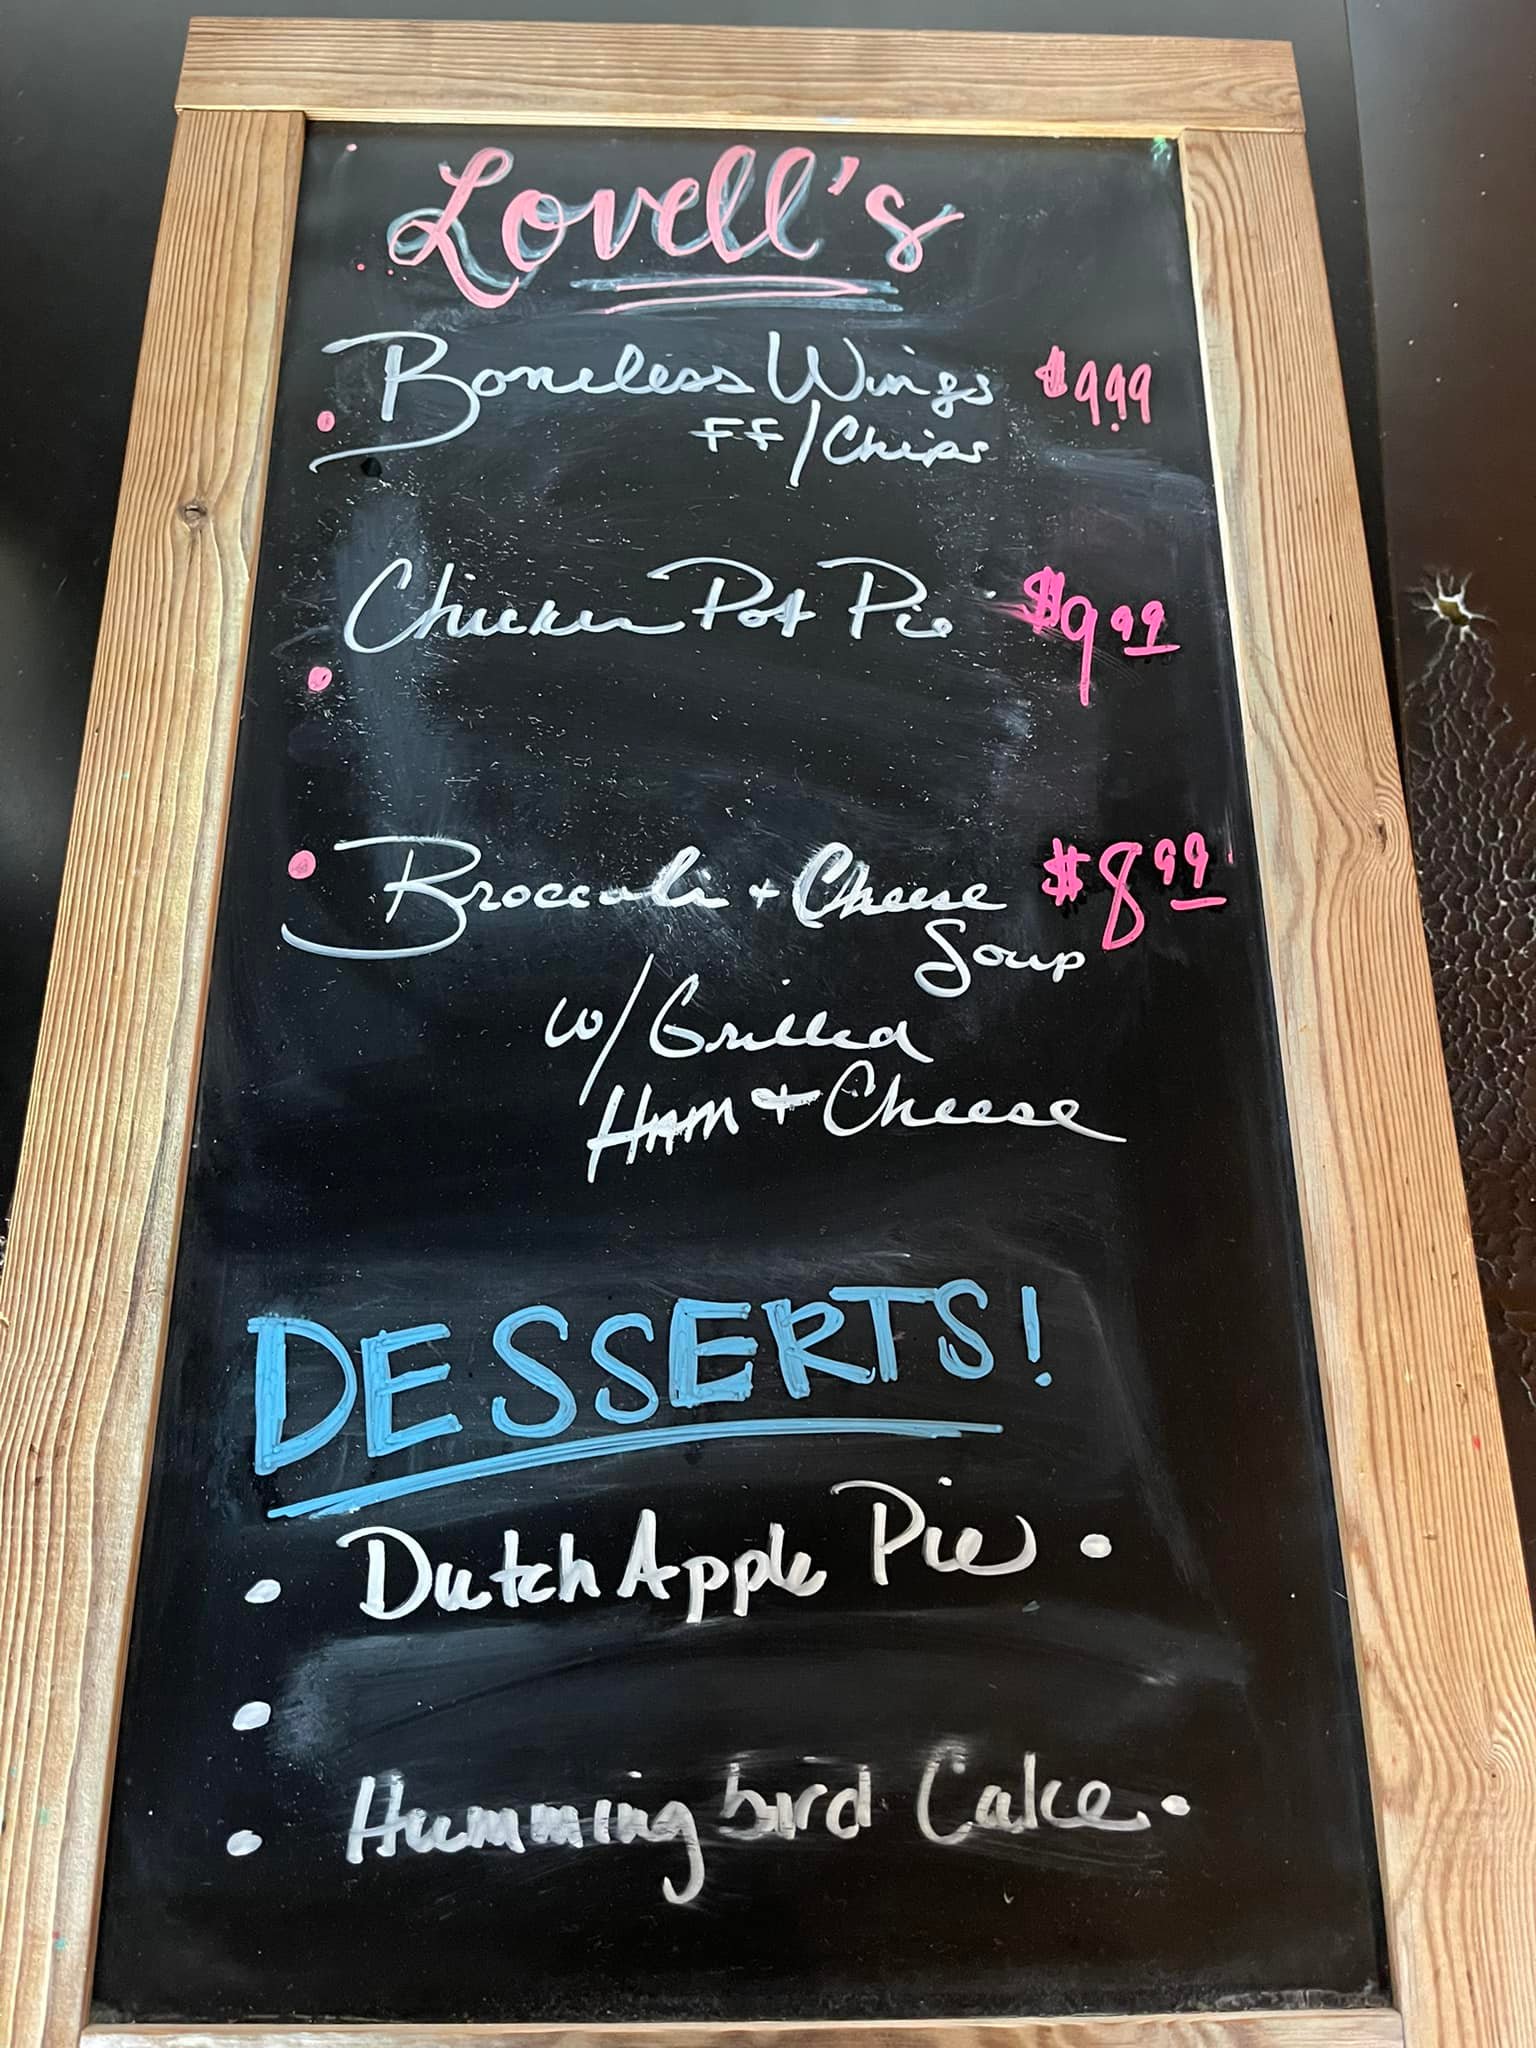 Lovell's
Boneless Wings $9.99
FF/Chips
Chicken Pot Pie $9.99
Broccoli + Cheese $8.99
Soup
w/Grilled
Ham + Cheese
DESSERTS!
• Dutch Apple Pie •
•
• Hummingbird Cake •